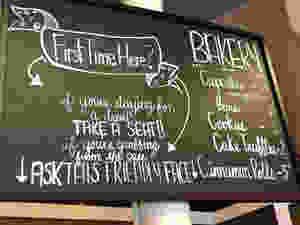 First Time Here?
if you're staying for
a while
TAKE A SEAT!!
if you're grabbing
from the case
↓ ASK THIS FRIENDLY FACE ↓
BAKERY
Cupcake
Cookie
Cake Truffles 2
Cinnamon Rolls -5